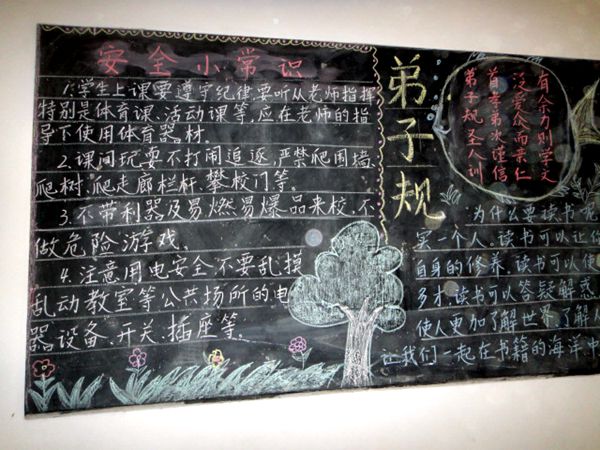 安全小常识
1.学生上课要遵守纪律要听从老师指挥
特别是体育课、活动课等,应在老师的指
导下使用体育器材.
2.课间玩耍不打闹追逐,严禁爬围墙
爬树.爬走廊栏杆.攀校门等。
3.不带利器及易燃易爆品来校,不
做危险游戏.
4.注意用电安全,不要乱摸
乱动教室等公共场所的电
器设备.开关.插座等.
弟子规
弟子规圣人训
首孝弟次谨信
泛爱众而亲仁
有余力则学文
为什么要读书呢
一个人.读书可以让你
自身的修养.读书可以使
多才.读书可以答疑解惑.
使人更加了解世界.了解人
让我们一起在书籍的海洋中